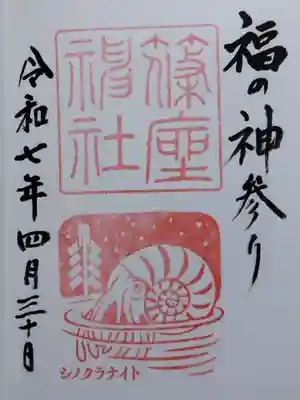 福の神参り
篠座
神社
令和七年四月三十日
シノクラナイト